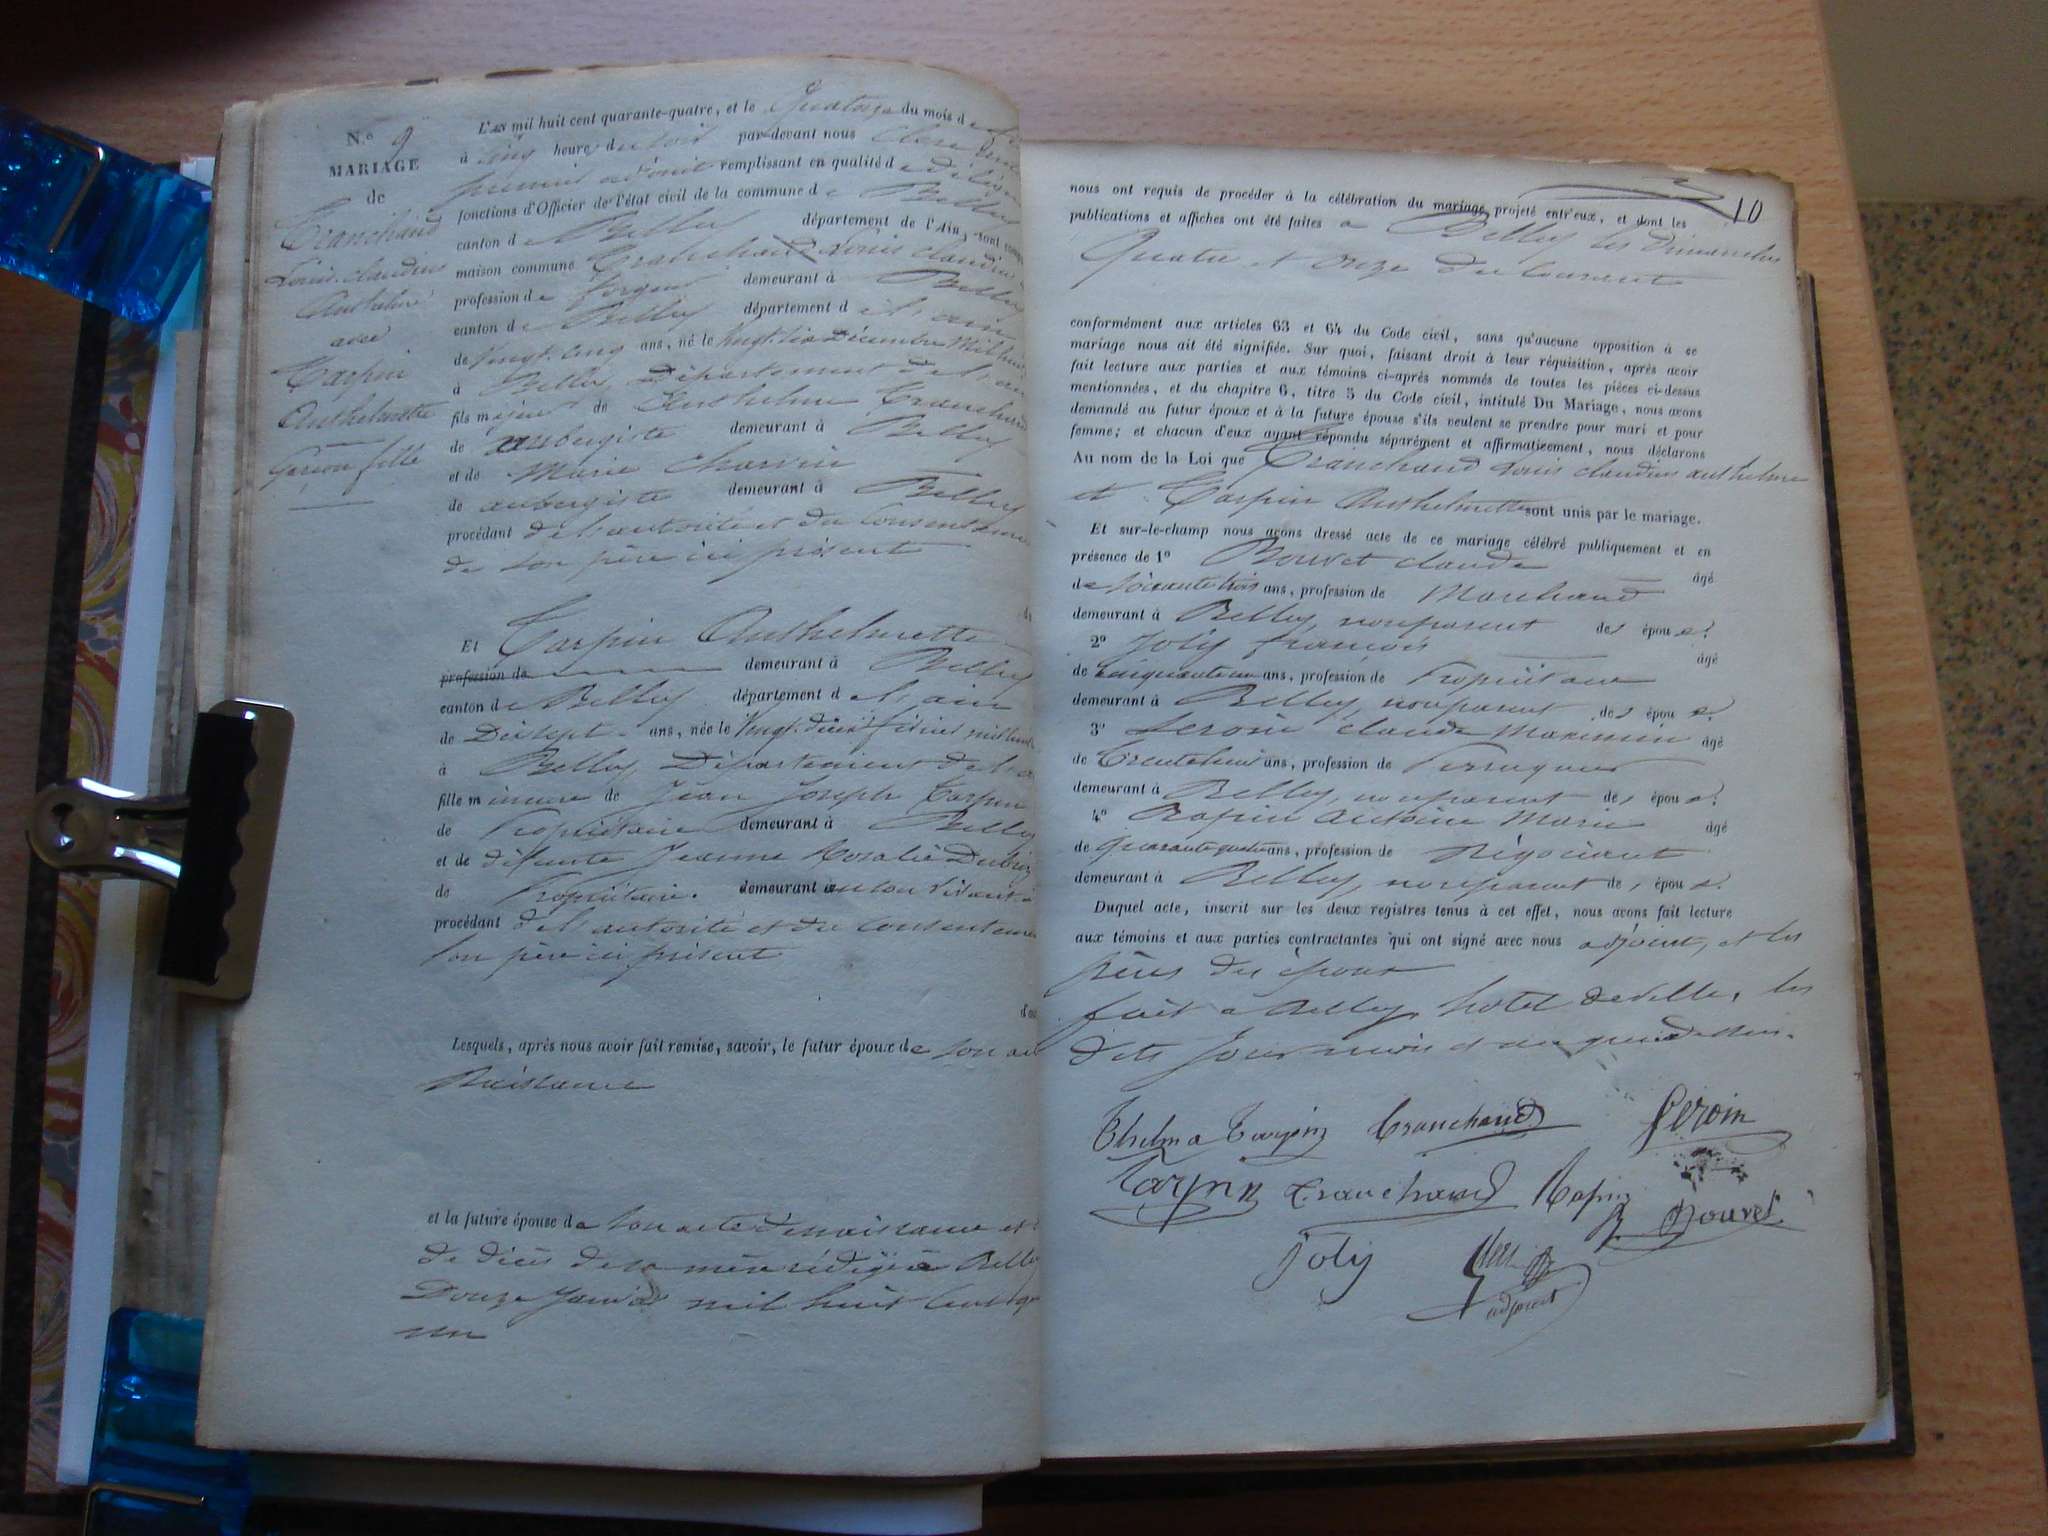 N.º 9
MARIAGE
de
Tranchand
Louis claudius
Anthelme
avec
Tarpin
Anthelmette
Garçon fille
L'AN mil huit cent quarante-quatre, et le Quatorze du mois d
à cinq heures du soir par-devant nous
premier adjoint remplissant en qualité d
fonctions d'Officier de l'état civil de la commune de Belley
canton de Belley département de l'Ain, sont
maison commune Tranchand Louis claudius
profession de demeurant à Belley
canton de Belley département de l'ain
de vingt cinq ans, né le vingt six Décembre mil huit
à Belley, Département de l'ain
fils majeur de Anthelme Tranchand
de aubergiste demeurant à Belley
et de Marie charvin
de aubergiste demeurant à Belley
procédant de l'autorité et du consentement
de son père ici présent
Et Tarpin Anthelmette
profession de demeurant à Belley
canton de Belley département de l'ain
de Dix sept ans, née le vingt deux février mil huit
à Belley, Département de l'ain
fille mineure de Jean Joseph Tarpin
de Propriétaire demeurant à Belley
et de défunte Jeanne Rosalie
de Propriétaire. demeurant en son vivant à
procédant de l'autorité et du consentement
son père ici présent
Lesquels, après nous avoir fait remise, savoir, le futur époux de son
Naissance
et la future épouse de son acte de naissance et
de décès de sa mère rédigé à Belley
Douze mil huit cent
un
10
nous ont requis de procéder à la célébration du mariage projeté entr'eux, et dont les
publications et affiches ont été faites à Belley les Dimanches
Quatre et onze du courant
conformément aux articles 63 et 64 du Code civil, sans qu'aucune opposition à ce
mariage nous ait été signifiée. Sur quoi, faisant droit à leur réquisition, après avoir
fait lecture aux parties et aux témoins ci-après nommés de toutes les pièces ci-dessus
mentionnées, et du chapitre 6, titre 5 du Code civil, intitulé Du Mariage, nous avons
demandé au futur époux et à la future épouse s'ils veulent se prendre pour mari et pour
femme; et chacun d'eux ayant répondu séparément et affirmativement, nous déclarons
Au nom de la Loi que Tranchand Louis claudius anthelme
et Tarpin Anthelmette sont unis par le mariage.
Et sur-le-champ nous avons dressé acte de ce mariage célébré publiquement et en
présence de 1º Bouvet claude âgé
de soixante trois ans, profession de Marchand
demeurant à Belley, non parent des époux.
2º Joly françois âgé
de Cinquante un ans, profession de Propriétaire
demeurant à Belley, non parent des époux.
3º Feroin claude Maximin âgé
de Trente huit ans, profession de Perruquier
demeurant à Belley, non parent des époux.
4º Rapin Antoine Marie âgé
de quarante quatre ans, profession de Négociant
demeurant à Belley, non parent des époux.
Duquel acte, inscrit sur les deux registres tenus à cet effet, nous avons fait lecture
aux témoins et aux parties contractantes qui ont signé avec nous adjoint, et les
pères des époux
fait à Belley, hotel de ville, les
dits jour mois et an que dessus.
Thelma Tarpin Tranchand Feroin
Tarpin Tranchand Rapin Bouvet
Joly
adjoint